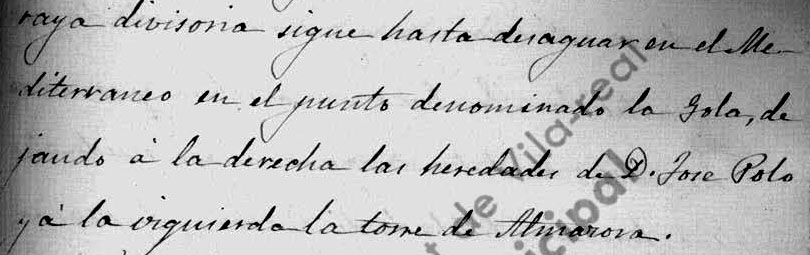 raya divisoria sigue hasta desaguar en el Me-
diterraneo en el punto denominado la Gola, de
jando á la derecha las heredades de D. Jose Polo
y á la izquierda la torre de Almazora.
t de Vila-real
icipal